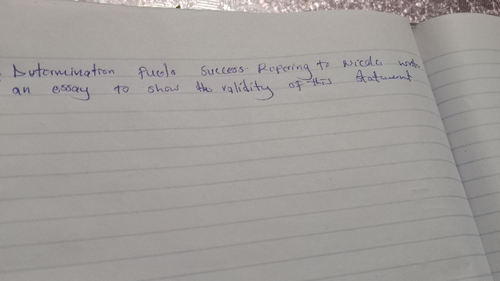 Determination fuels success. Refering to Nicole write
an essay to show the validity of this statement